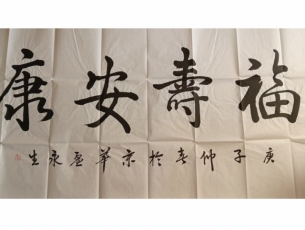 福壽安康
庚子仲春於京華毉永生